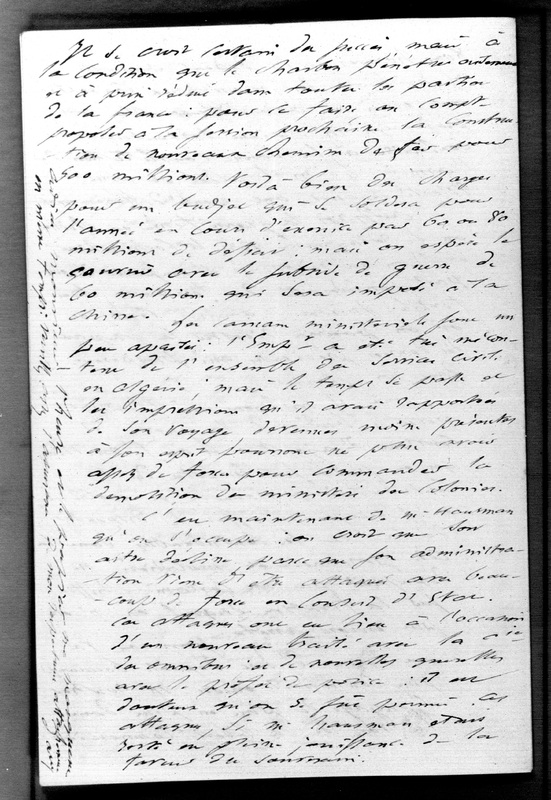 Il se croit certain du succès, mais à
la condition que le charbon pénètre
et à prix réduit dans toutes les parties
de la france : pour ce faire on compte
proposer à la session prochaine la construc-
tion de nouveaux chemins de fer pour
500 millions. Voilà bien des charges
pour un budget qui se soldera pour
l'année en cours d'exercice par 60 ou 80
millions de déficit ; mais on espère le
couvrir avec le subside de guerre de
60 millions qui sera imposé à la
Chine. Les cancans ministériels sont un
peu apaisés : l'Empr a été très mécon-
tent de l'ensemble des services civils
en algérie ; mais le temps se passe et
les impressions qu'il avait rapportées
de son voyage, devenues moins présentes
à son esprit pourront ne plus avoir
assez de force pour commander la
démolition du ministère des Colonies.
C'est maintenant de mr haussman
qu'on s'occupe : on croit que son
astre décline parce que son administra-
tion vient d'être attaquée avec beau-
coup de force en Conseil d'Etat.
Ces attaques ont eu lieu à l'occasion
d'un nouveau traité avec la cie
des omnibus et de nouvelles querelles
avec le préfet de police : il est
douteux qu'on se fût permis ces
attaques, si mr haussman était
resté en pleine jouissance de la
faveur du souverain.